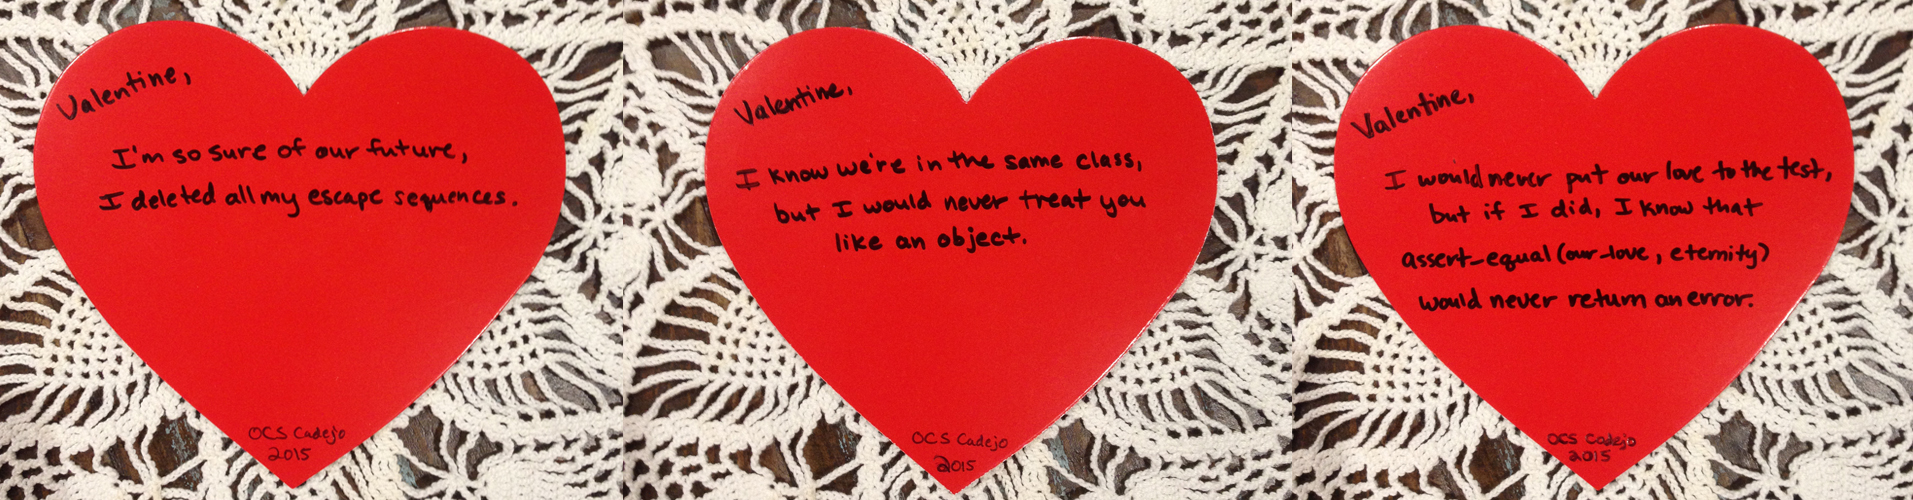 Valentine,
I'm so sure of our future,
I deleted all my escape sequences.
OCS Cadejo
2015
Valentine,
I know we're in the same class,
but I would never treat you
like an object.
OCS Cadejo
2015
Valentine,
I would never put our love to the test,
but if I did, I know that
assert_equal(our_love, eternity)
would never return an error.
OCS Cadejo
2015